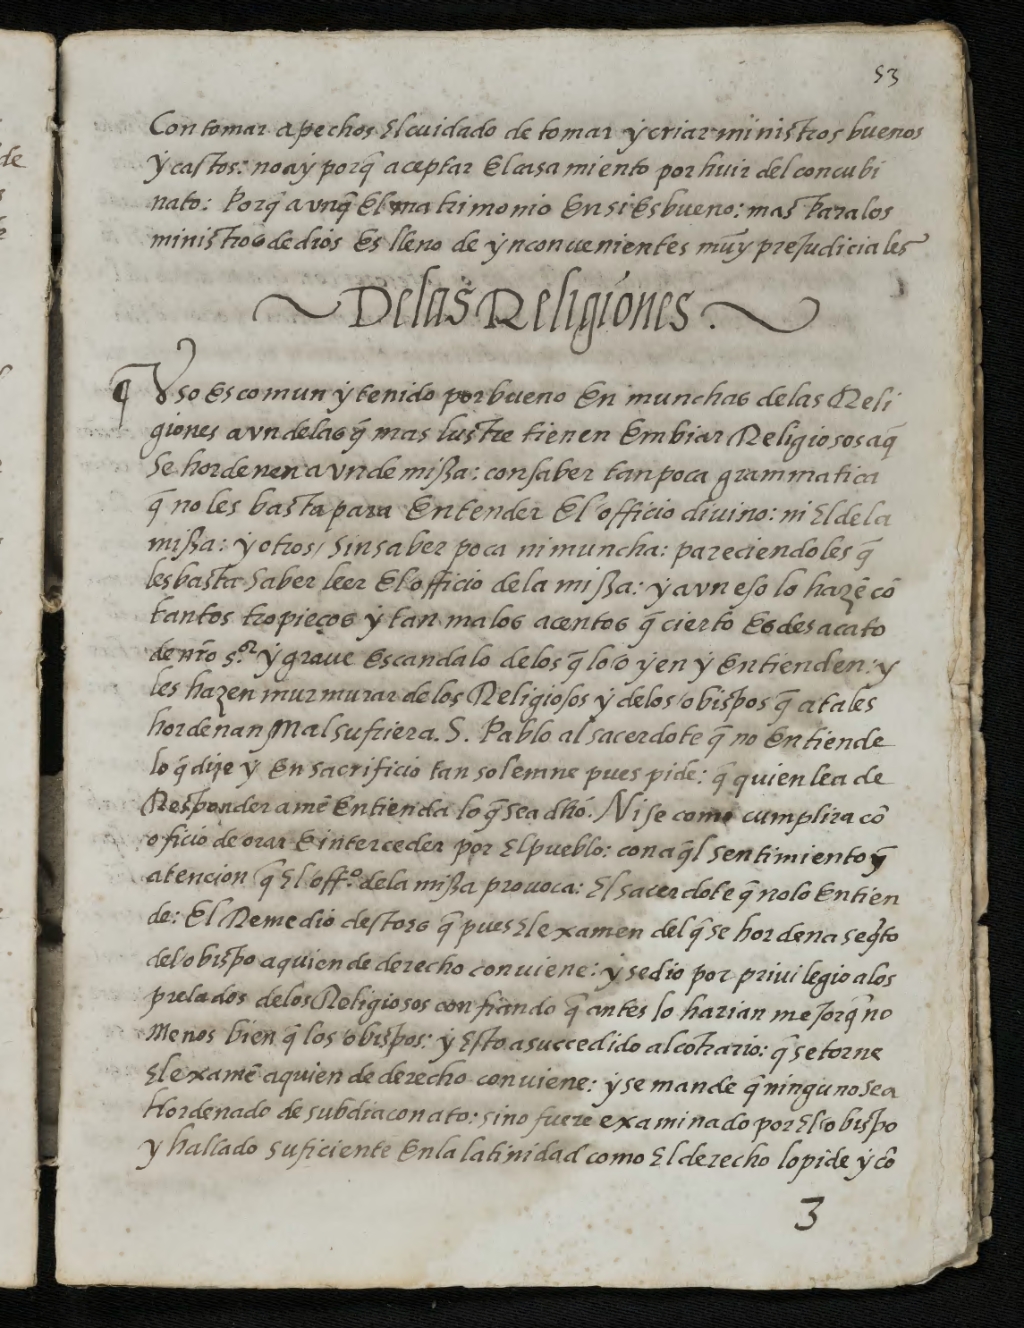 53
Con tomar a pechos El cuidado de tomar ẏ criar ministros buenos
ẏ castos: no aẏ porq̃ aceptar El casamiento por huir del concubi
nato: Porq̃ avnq̃ El matrimonio En si Es bueno: mas Para los
ministros de dios Es lleno de ẏnconuenientes muẏ preJudiciales
De las Religiones.
Vso Es comun ẏ tenido por bueno En munchas de las Reli
giones avn de las q̃ mas lustre tienen Embiar Religiosos a q̃
Se hordenen avn de missa: con saber tan poca grammatica
q̃ no les basta para Entender El officio diuino: ni El de la
missa: ẏ otros / sin saber poca ni muncha: pareciendoles q̃
les basta Saber leer El officio de la missa: ẏ avn eso lo hazẽ cõ
tantos tropieços ẏ tan malos acentos q̃ cierto Es desacato
de nr̃o s.or ẏ graue Escandalo de los q̃ lo oẏen ẏ Entienden: y
les hazen murmurar de los Religiosos ẏ de los obispos q̃ a tales
hordenan Mal sufriera. S. Pablo al sacerdote q̃ no Entiende
lo q̃ dize ẏ En sacrificio tan solemne pues pide: q̃ quien lea de
Responder amẽ Entienda lo q̃ sea dho. Ni se como cumplira cõ
oficio de orar E interceder por El pueblo: con aq̃l sentimiento ẏ
atencion q̃ El off.o de la missa prouoca: El sacerdote q̃ no lo Entien
de: El Remedio desto es q̃ pues El examen del q̃ se hordena seq̃to
del obispo a quien de derecho conuiene: ẏ se dio por priuilegio a los
prelados de los Religiosos confiando q̃ antes lo harian meJor q̃ no
Menos bien q̃ los obispos: ẏ Esto a succedido al cõtrario: q̃ se torne
El examẽ a quien de derecho conuiene: ẏ se mande q̃ ninguno sea
Hordenado de subdiaconato: sino fuere examinado por El obispo
y hallado suficiente En la latinidad como El derecho lo pide ẏ cõ
3